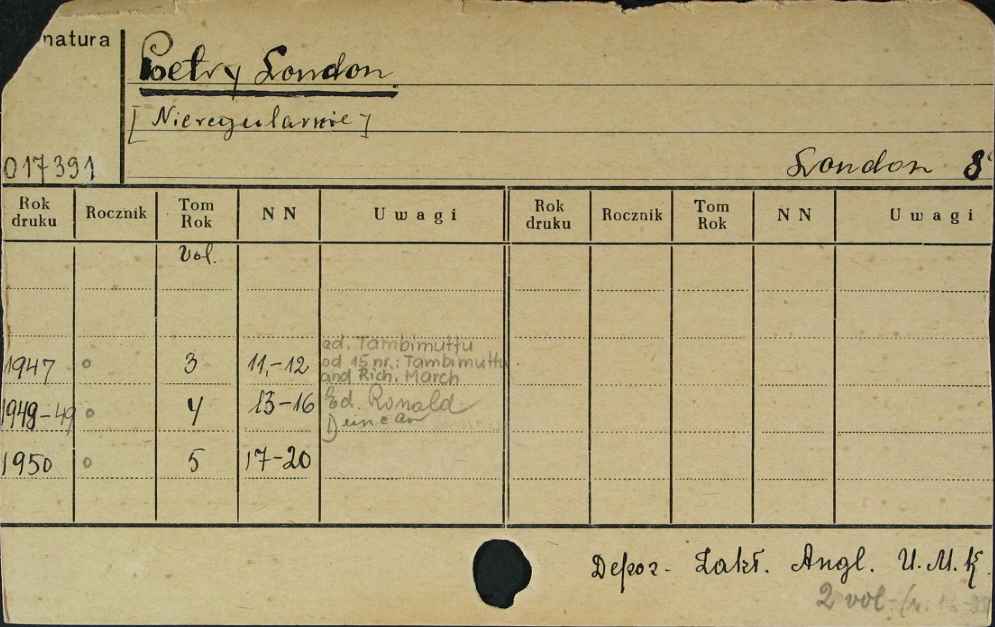 natura
Poetry London
[Nieregularnie]
017391
London 8°
Rok druku Rocznik Tom Rok NN Uwagi Rok druku Rocznik Tom Rok NN Uwagi
Vol.
ad. Tambimuttu
od 15 nr.: Tambimuttu
and Rich. March
1947 o 3 11,-12
1948-49 o 4 13-16 Ed. Ronald
Duncan
1950 o 5 17-20
Depoz. Zakł. Angl. U.M.K.
2 vol.